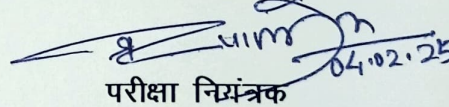 04.02.25
परीक्षा नियंत्रक